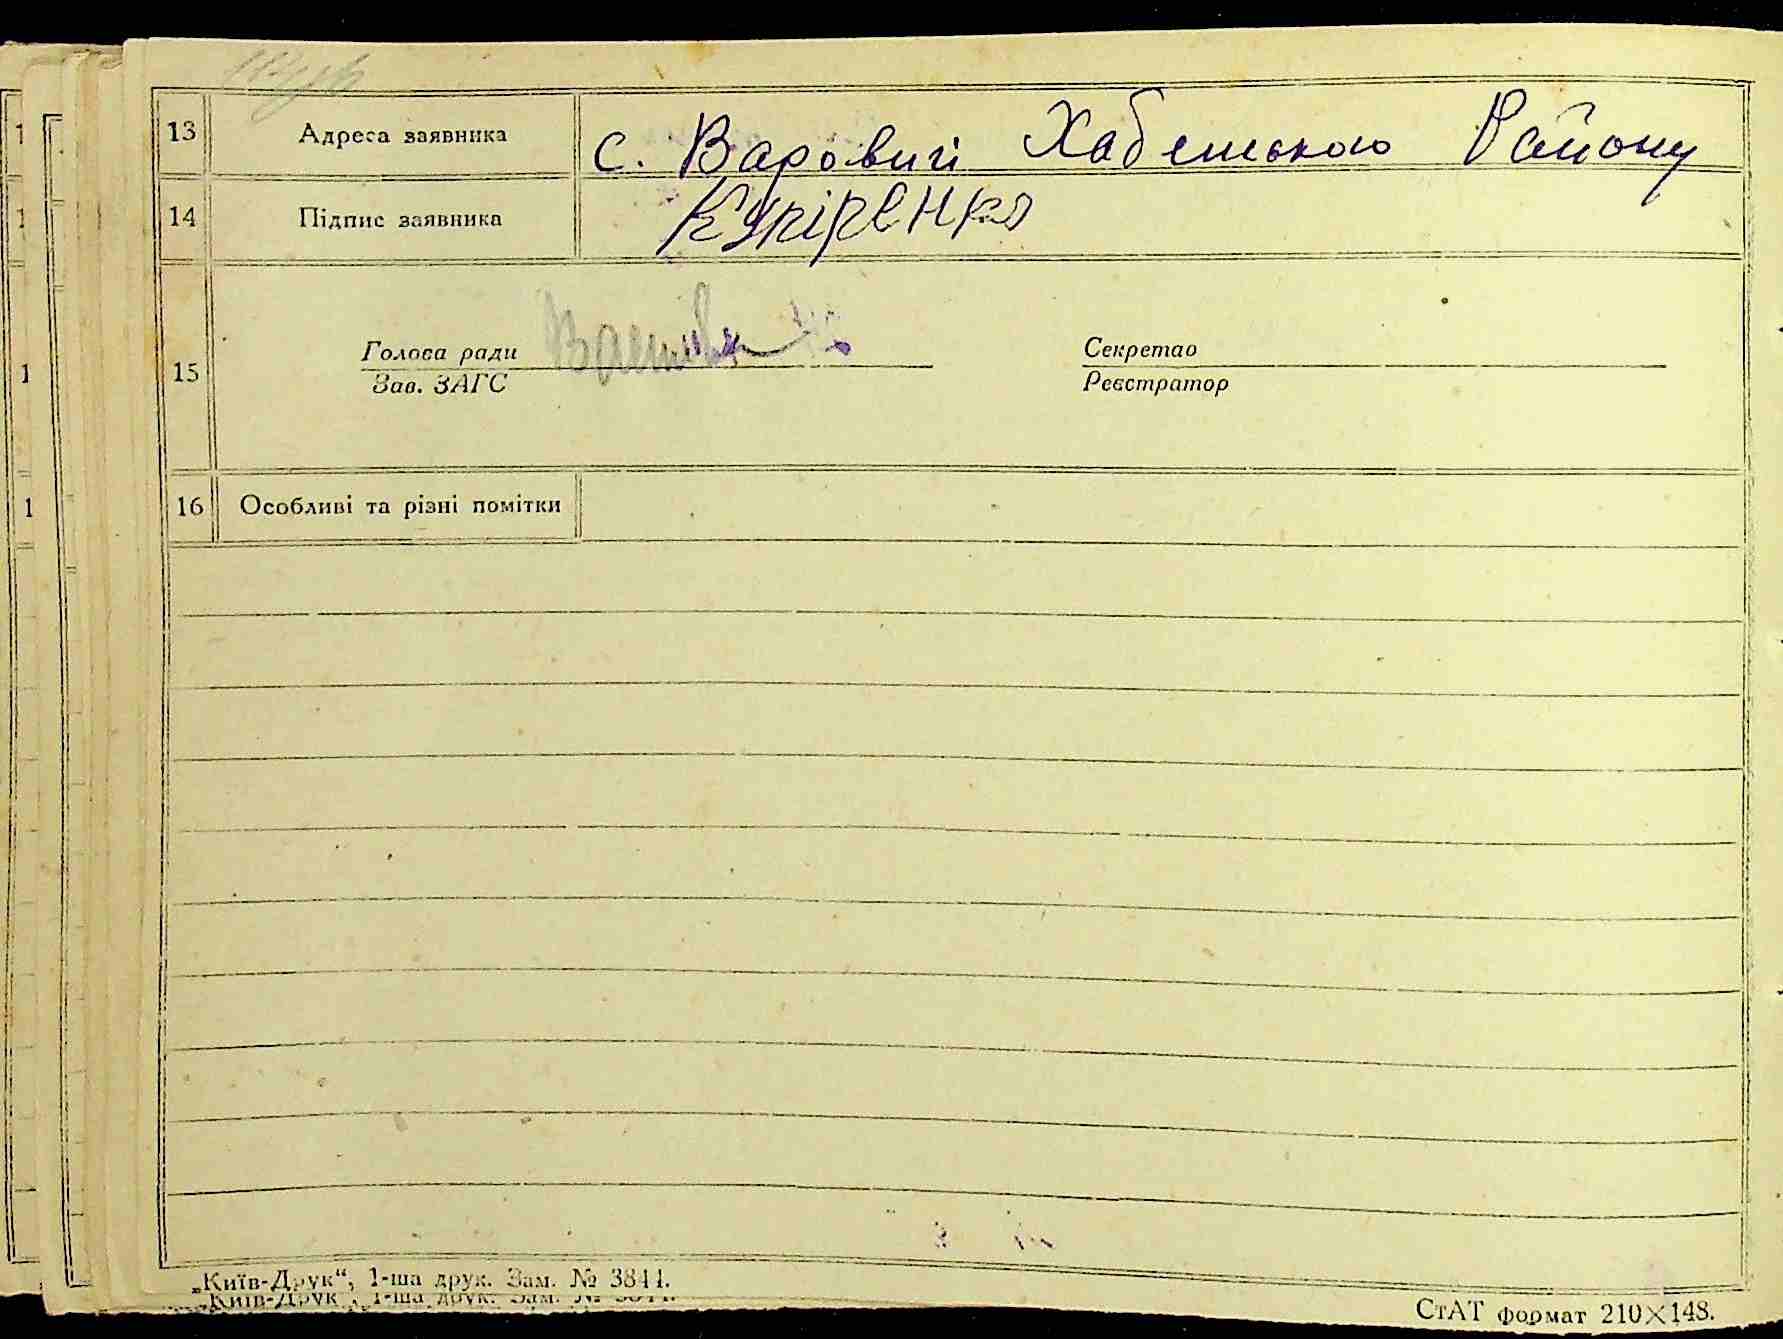 13 Адреса заявника с. Варовичі Хабенського Району
14 Підпис заявника Купіренко
15 Голова ради
Зав. ЗАГС
Секретар
Реєстратор
16 Особливі та різні помітки
„Київ-Друк“, 1-ша друк. Зам. № 3844.
СтАТ формат 210×148.